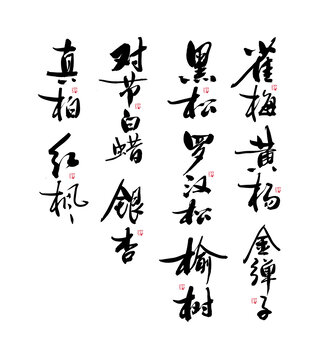 雀梅
黄杨
金弹子
黑松
罗汉松
榆树
对节白蜡
银杏
真柏
红枫